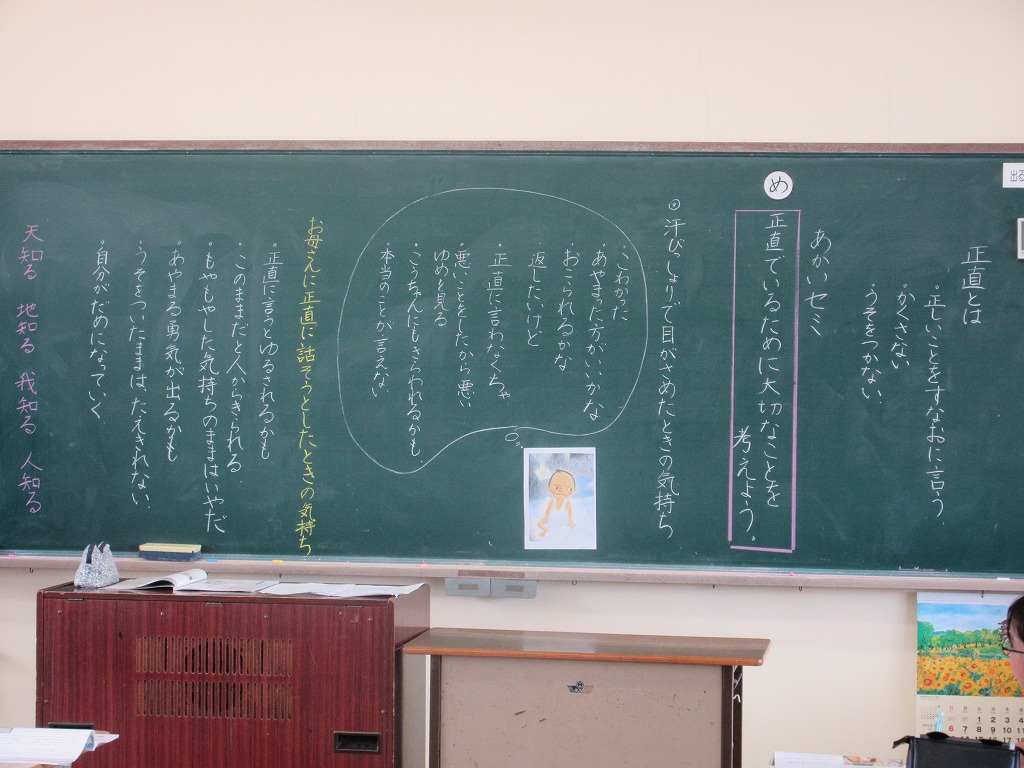 正直とは
・正しいことをすなおに言う
・かくさない
・うそをつかない
あかいセミ
め
正直でいるために大切なことを
考えよう。
◎汗びっしょりで目がさめたときの気持ち
・こわかった
・あやまった方がいいかな
・おこられるかな
・返したいけど
・正直に言わなくちゃ
・悪いことをしたから悪い
ゆめを見る
・こうちゃんにもきらわれるかも
・本当のことが言えない
お母さんに正直に話そうとしたときの気持ち
・正直に言うとゆるされるかも
・このままだと人からきらわれる
・もやもやした気持ちのままはいやだ
・あやまる勇気が出るかも
・うそをついたままは、たえきれない
・自分がだめになっていく
天知る 地知る 我知る 人知る
出る